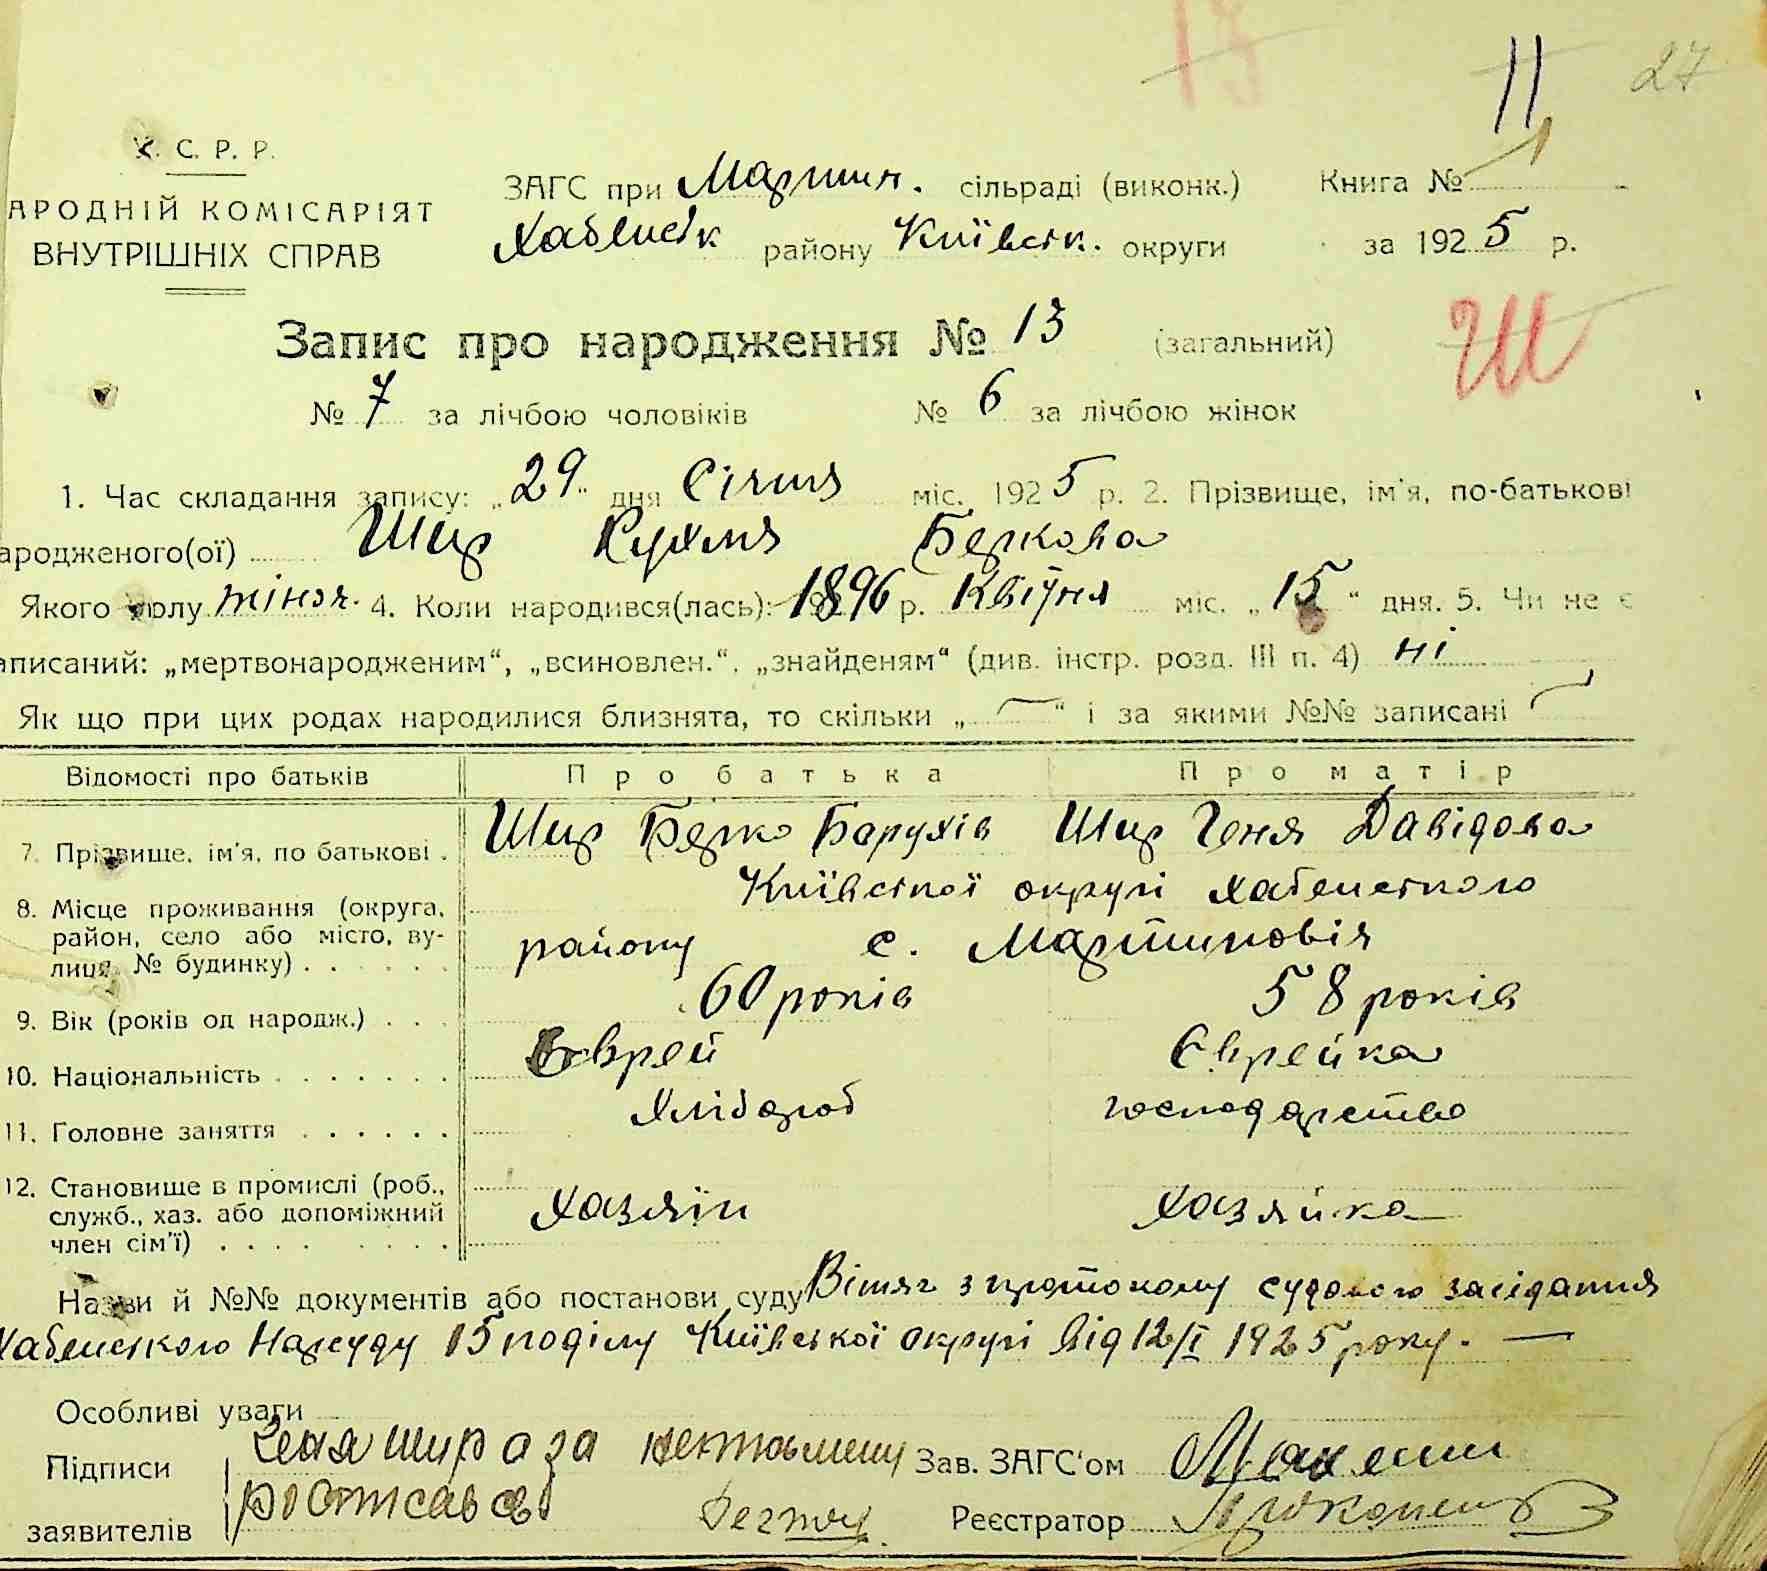 11 27
У. С. Р. Р.
АРОДНІЙ КОМІСАРІЯТ
ВНУТРІШНІХ СПРАВ
ЗАГС при Мартин. сільраді (виконк.) Книга № 1
Хабенськ району Київськ. округи за 1925 р.
Запис про народження № 13 (загальний)
Ш
№ 7 за лічбою чоловіків № 6 за лічбою жінок
1. Час складання запису: „29“ дня Січня міс. 1925 р. 2. Прізвище, ім'я, по-батькові
ародженого(ої) Шир Рухля Беркова
Якого полу жіноч. 4. Коли народився(лась): 1896 р. Квітня міс. „15“ дня. 5. Чи не є
аписаний: „мертвонародженим“, „всиновлен.“, „знайденям“ (див. інстр. розд. III п. 4) ні
Як що при цих родах народилися близнята, то скільки „—“ і за якими №№ записані —
Відомості про батьків Про батька Про матір
7. Прізвище, ім'я, по батькові . Шир Берко Борухів Шир Геня Давідова
8. Місце проживання (округа, район, село або місто, вулиця, № будинку) . . . . . . Київської округі Хабенського
району с. Мартиновія
9. Вік (років од народж.) . . . 60 років 58 років
10. Національність . . . . . . . Єврей Єврейка
11. Головне заняття . . . . . . Хлібороб господарство
12. Становище в промислі (роб., служб., хаз. або допоміжний член сім'ї) . . . . . . . . Хазяїн Хазяйка
Назви й №№ документів або постанови суду Вітяг з протоколу судового засідання
Хабенського Нарсуду 15 поділу Київської округі від 12/I 1925 року. —
Особливі уваги
Підписи Геня Шир а за неграмотну Зав. ЗАГС'ом
заявителів Реєстратор